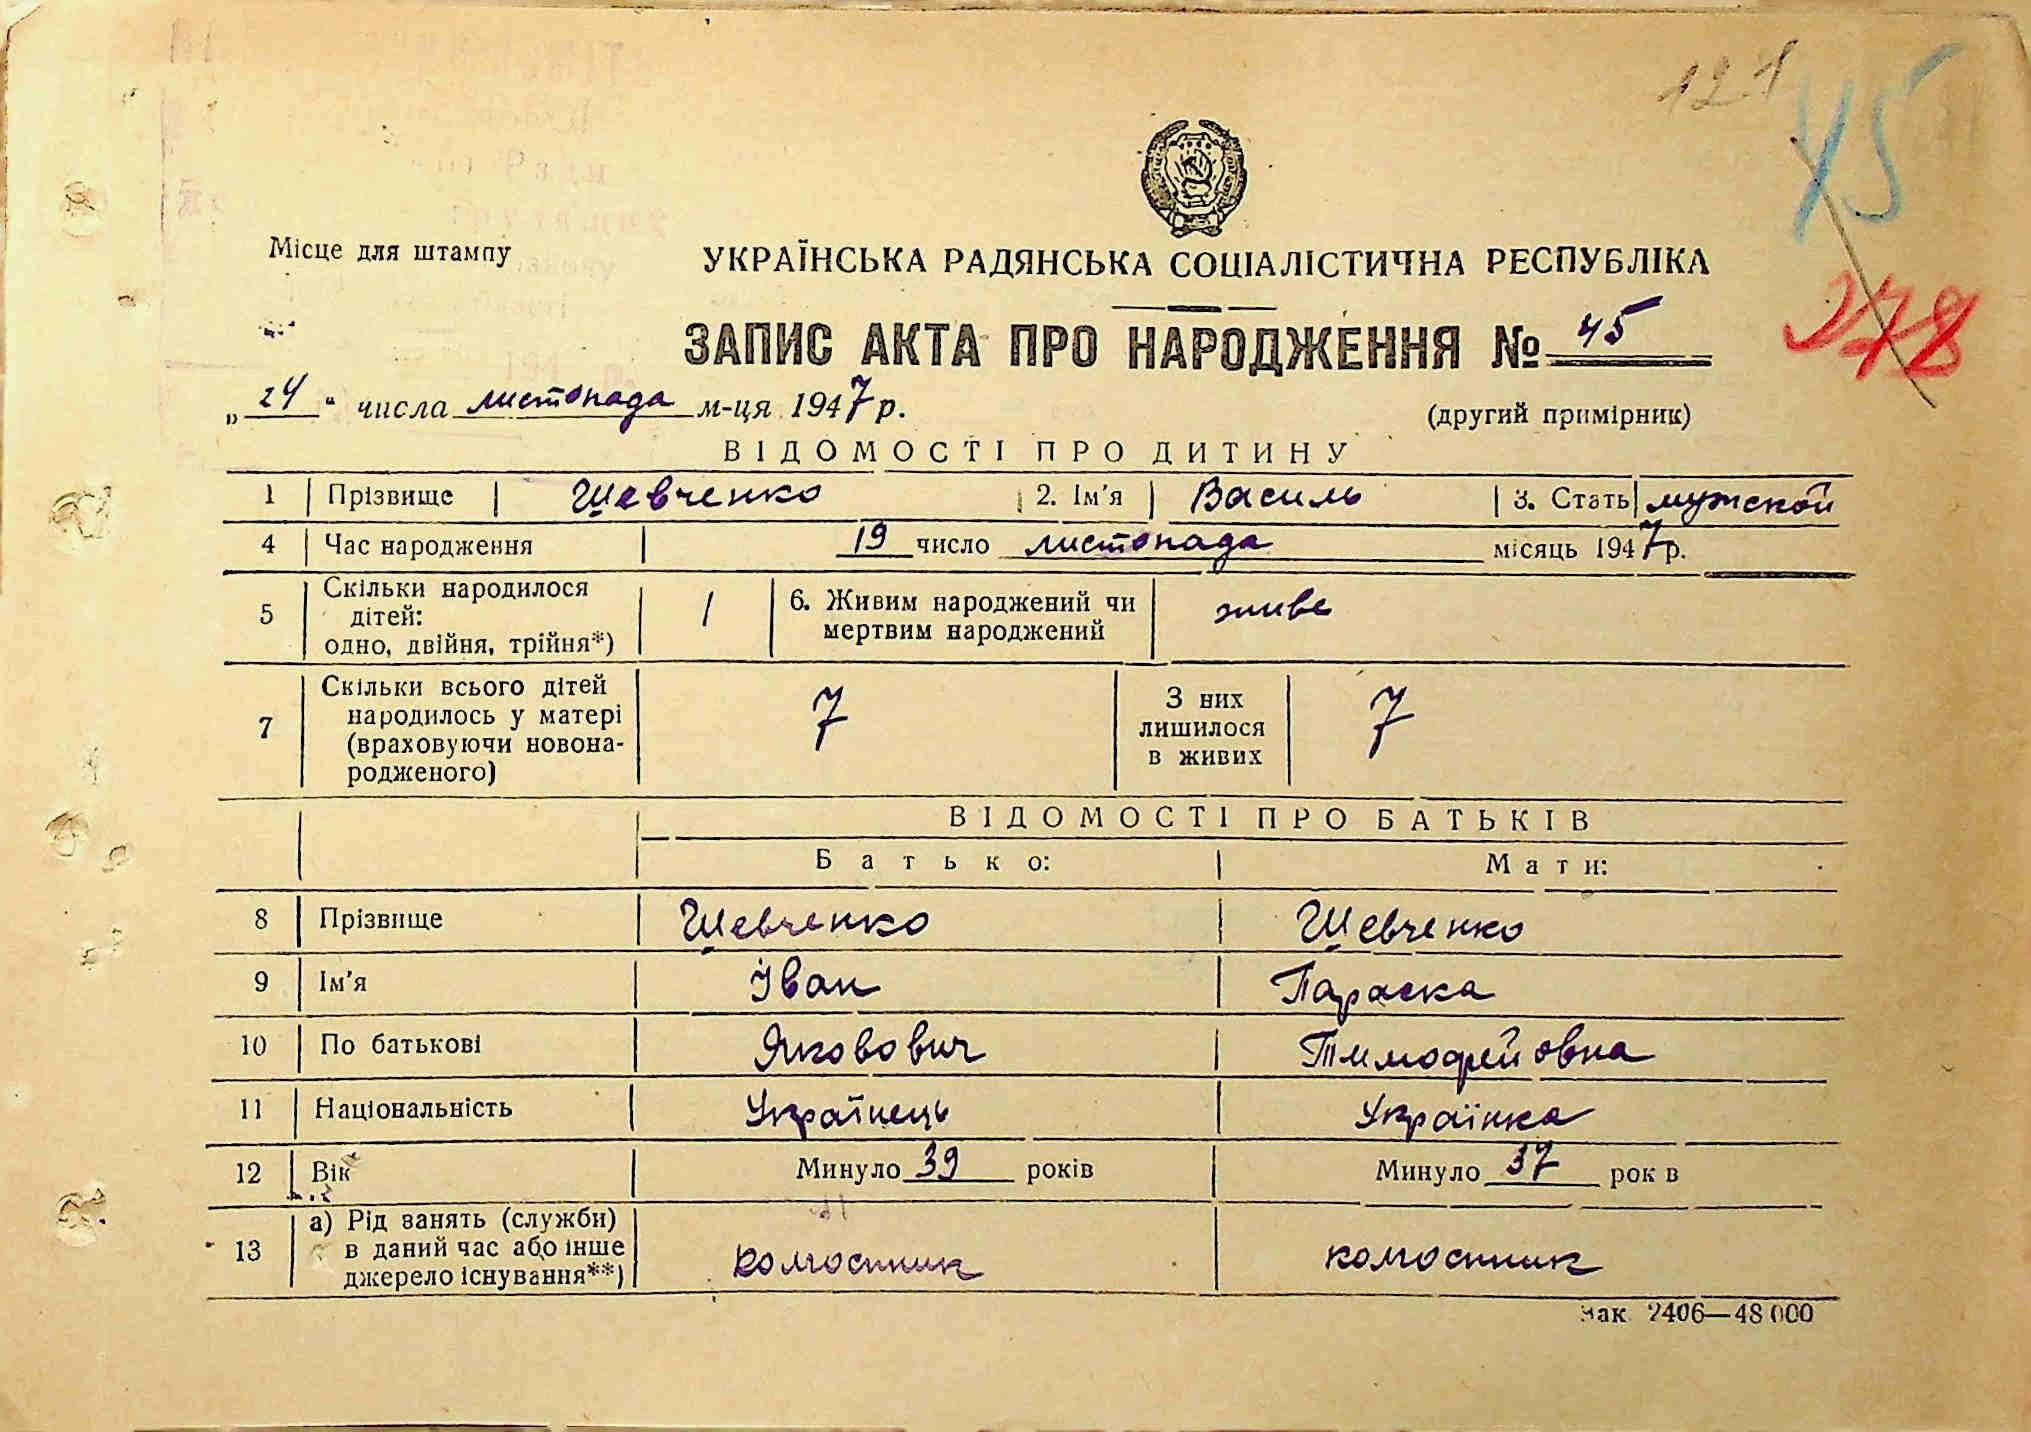 121
45
Місце для штампу
УКРАЇНСЬКА РАДЯНСЬКА СОЦІАЛІСТИЧНА РЕСПУБЛІКА
278
ЗАПИС АКТА ПРО НАРОДЖЕННЯ № 45
„24“ числа листопада м-ця 1947 р.
(другий примірник)
ВІДОМОСТІ ПРО ДИТИНУ
1 Прізвище Шевченко 2. Ім'я Василь 3. Стать мужской
4 Час народження 19 число листопада місяць 1947 р.
5 Скільки народилося дітей: одно, двійня, трійня*) 1 6. Живим народжений чи мертвим народжений живе
7 Скільки всього дітей народилось у матері (враховуючи новонародженого) 7 З них лишилося в живих 7
ВІДОМОСТІ ПРО БАТЬКІВ
Батько: Мати:
8 Прізвище Шевченко Шевченко
9 Ім'я Іван Параска
10 По батькові Якович Тимофейовна
11 Національність Українець Українка
12 Вік Минуло 39 років Минуло 37 рок в
13 а) Рід занять (служби) в даний час або інше джерело існування**) колгоспник колгоспник
Зак 2406—48 000